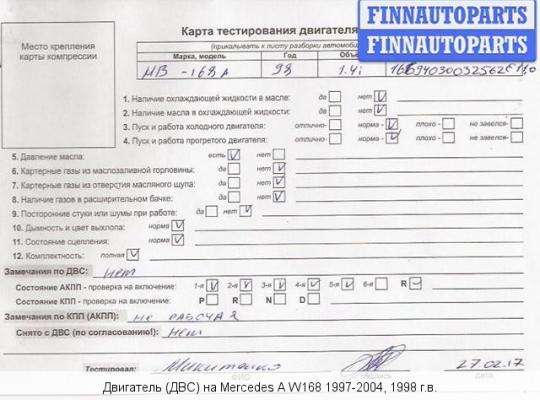 FINNAUTOPARTS
FINNAUTOPARTS
Карта тестирования двигателя
(прикалывать к листу разборки автомоби
Место крепления
карты компрессии
Марка, модель Год Объе
МВ - 168 А 98 1.4i
1. Наличие охлаждающей жидкости в масле: да нет
2. Наличие масла в охлаждающей жидкости: да нет
3. Пуск и работа холодного двигателя: отлично- норма - плохо - не завелся-
4. Пуск и работа прогретого двигателя: отлично- норма - плохо - не завелся-
5. Давление масла: есть нет
6. Картерные газы из маслозаливной горловины: да нет
7. Картерные газы из отверстия масляного щупа: да нет
8. Наличие газов в расширительном бачке: да нет
9. Посторонние стуки или шумы при работе: да нет
10. Дымность и цвет выхлопа: норма
11. Состояние сцепления: норма
12. Комплектность: полная
Замечания по ДВС: нет
Состояние АКПП - проверка на включение: 1-я 2-я 3-я 4-я 5-я 6-я R
Состояние КПП - проверка на включение: P R N D
Замечания по КПП (АКПП): не РАБОЧАЯ
Снято с ДВС (по согласованию!): нет
Тестировал: Микитенко 27.02.17
Двигатель (ДВС) на Mercedes A W168 1997-2004, 1998 г.в.